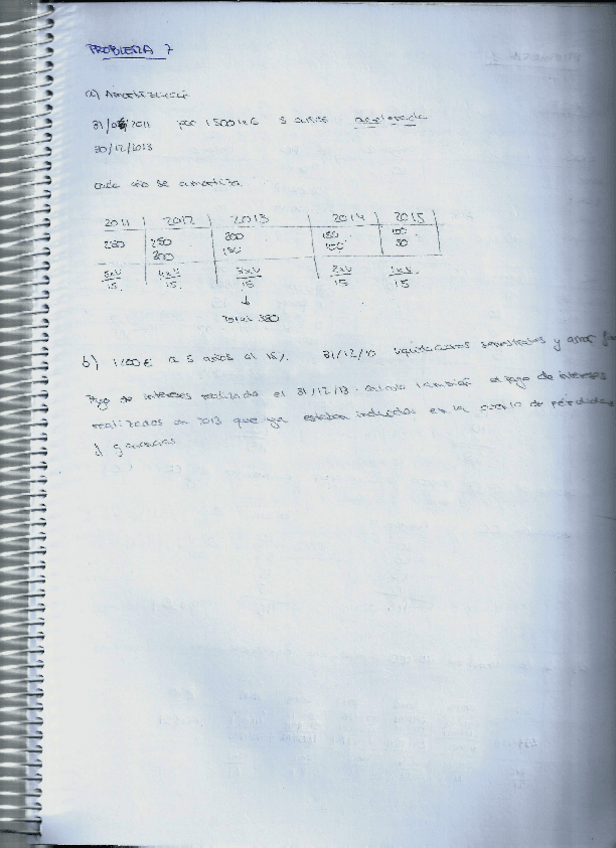 PROBLEMA 7
a) Amortización
31/0 2011 por 1500 5 años acelerada
30/12/2013
cada año se amortiza
2011 2012 2013 2014 2015
250 250 200 150 100
200 150 100 50
5xU 4xU 3xU 2xU 1xU
15 15 15 15 15
↓
Total 350
b) a 5 años al 15%. 31/12/10 liquidaciones semestrales y amor
Pago de intereses realizado el 31/12/13. el pago de intereses
realizados en 2013 que ya estaban incluidos en la cuenta de pérdidas
y ganancias